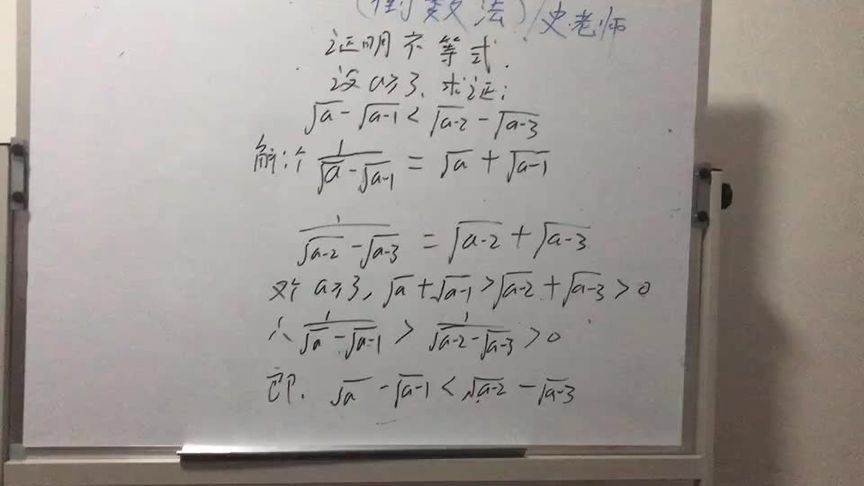 (倒数法)/史老师
证明不等式.
设a≥3,求证:
√a-√a-1<√a-2-√a-3
解:∵1/√a-√a-1=√a+√a-1
1/√a-2-√a-3=√a-2+√a-3
对a≥3,√a+√a-1>√a-2+√a-3>0
∴1/√a-√a-1>1/√a-2-√a-3>0
即.√a-√a-1<√a-2-√a-3